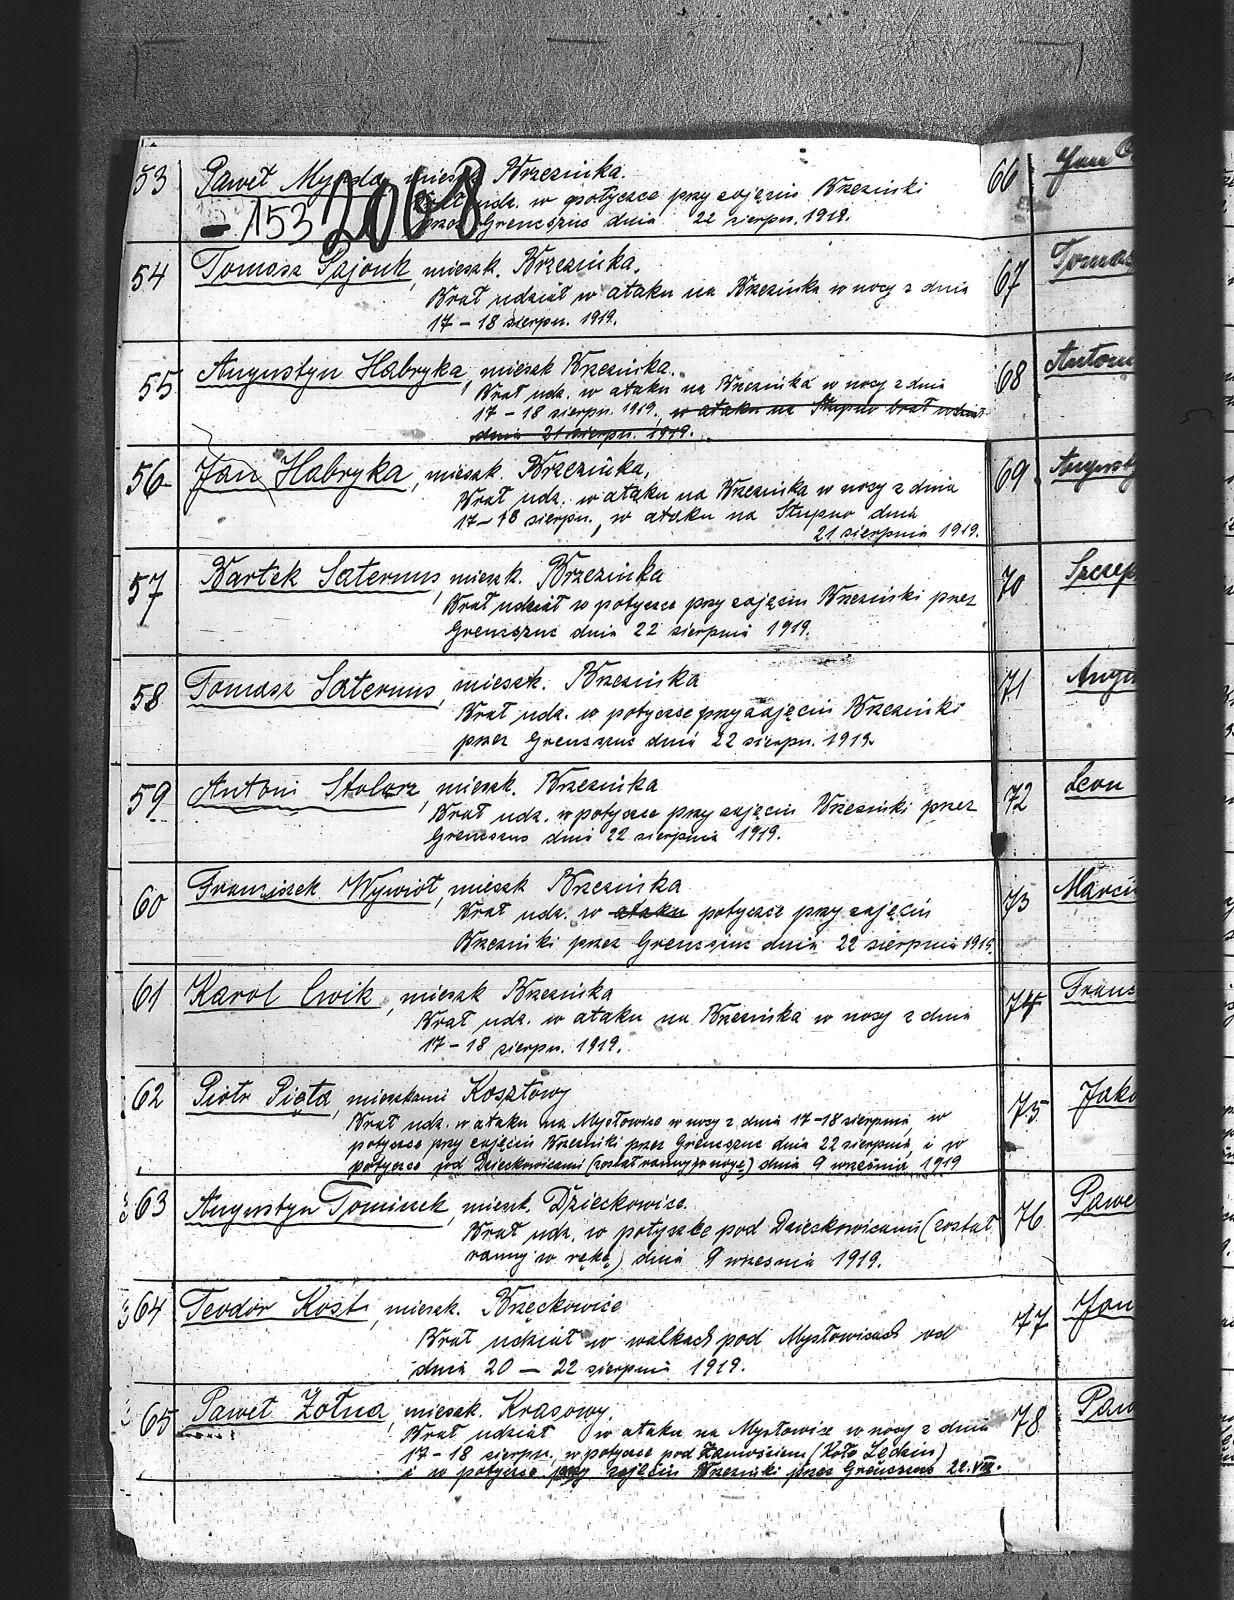 53 Paweł mieszk. Brzezinka.
Brał udz. w potyczce przy zajęciu Brzezinki
przez Grenzszuc dnia 22 sierpn. 1919.
- 153 2068
54 Tomasz Pajonk, mieszk. Brzezinka.
Brał udział w ataku na Brzezinka w nocy z dnia
17 – 18 sierpn. 1919.
55 Augustyn Habryka, mieszk Brzezinka.
Brał udz. w ataku na Brzezinka w nocy z dnia
17 – 18 sierpn. 1919. w ataku na Słupno brał udział
dnia 21 sierpn. 1919.
56 Jan Habryka, mieszk. Brzezinka.
Brał udz. w ataku na Brzezinka w nocy z dnia
17 – 18 sierpn., w ataku na Słupno dnia
21 sierpnia 1919.
57 Bartek Saternus, mieszk. Brzezinka
Brał udział w potyczce przy zajęciu Brzezinki przez
Grenzszuc dnia 22 sierpnia 1919.
58 Tomasz Saternus, mieszk. Brzezinka
Brał udz. w potyczce przy zajęciu Brzezinki
przez Grenzszuc dnia 22 sierpn. 1919.
59 Antoni Stolorz, mieszk. Brzezinka
Brał udz. w potyczce przy zajęciu Brzezinki przez
Grenzszuc dnia 22 sierpnia 1919.
60 Franciszek Wywiół, mieszk Brzezinka
Brał udz. w ataku potyczce przy zajęciu
Brzezinki przez Grenzszuc dnia 22 sierpnia 1919.
61 Karol Cwik, mieszk Brzezinka
Brał udz. w ataku na Brzezinka w nocy z dnia
17 – 18 sierpn. 1919.
62 Piotr Pięta, mieszkami Kosztowy
Brał udz. w ataku na Mysłowice w nocy z dnia 17–18 sierpnia, w
potyczce przy zajęciu Brzezinki przez Grenzszuc dnia 22 sierpnia, i w
potyczce pod Dzieckowicami (został ranny w nogę) dnia 9 września 1919
63 Augustyn Tominek, mieszk. Dzieckowice.
Brał udz. w potyczke pod Dzieckowicami (został
ranny w rękę) dnia 9 wrzesnia 1919.
64 Teodor Kost, mieszk. Brzęckowice
Brał udział w walkach pod Mysłowicach od
dnia 20 – 22 sierpnia 1919.
65 Paweł Żołna, mieszk. Krasowy.
Brał udział w ataku na Mysłowice w nocy z dnia
17 – 18 sierpn., w potyczce pod Zamościem (Koło Lędzin)
i w potyczce przy zajęciu Brzezinki przez Grenzszuc 22.VIII.
66 Jan
67 Tomasz
68 Anton
69 Augusty
70 Szczep
71 Augu
72 Leon
73 Marci
74 Franc
75 Jako
76 Pawe
77 Jan
78 Paw